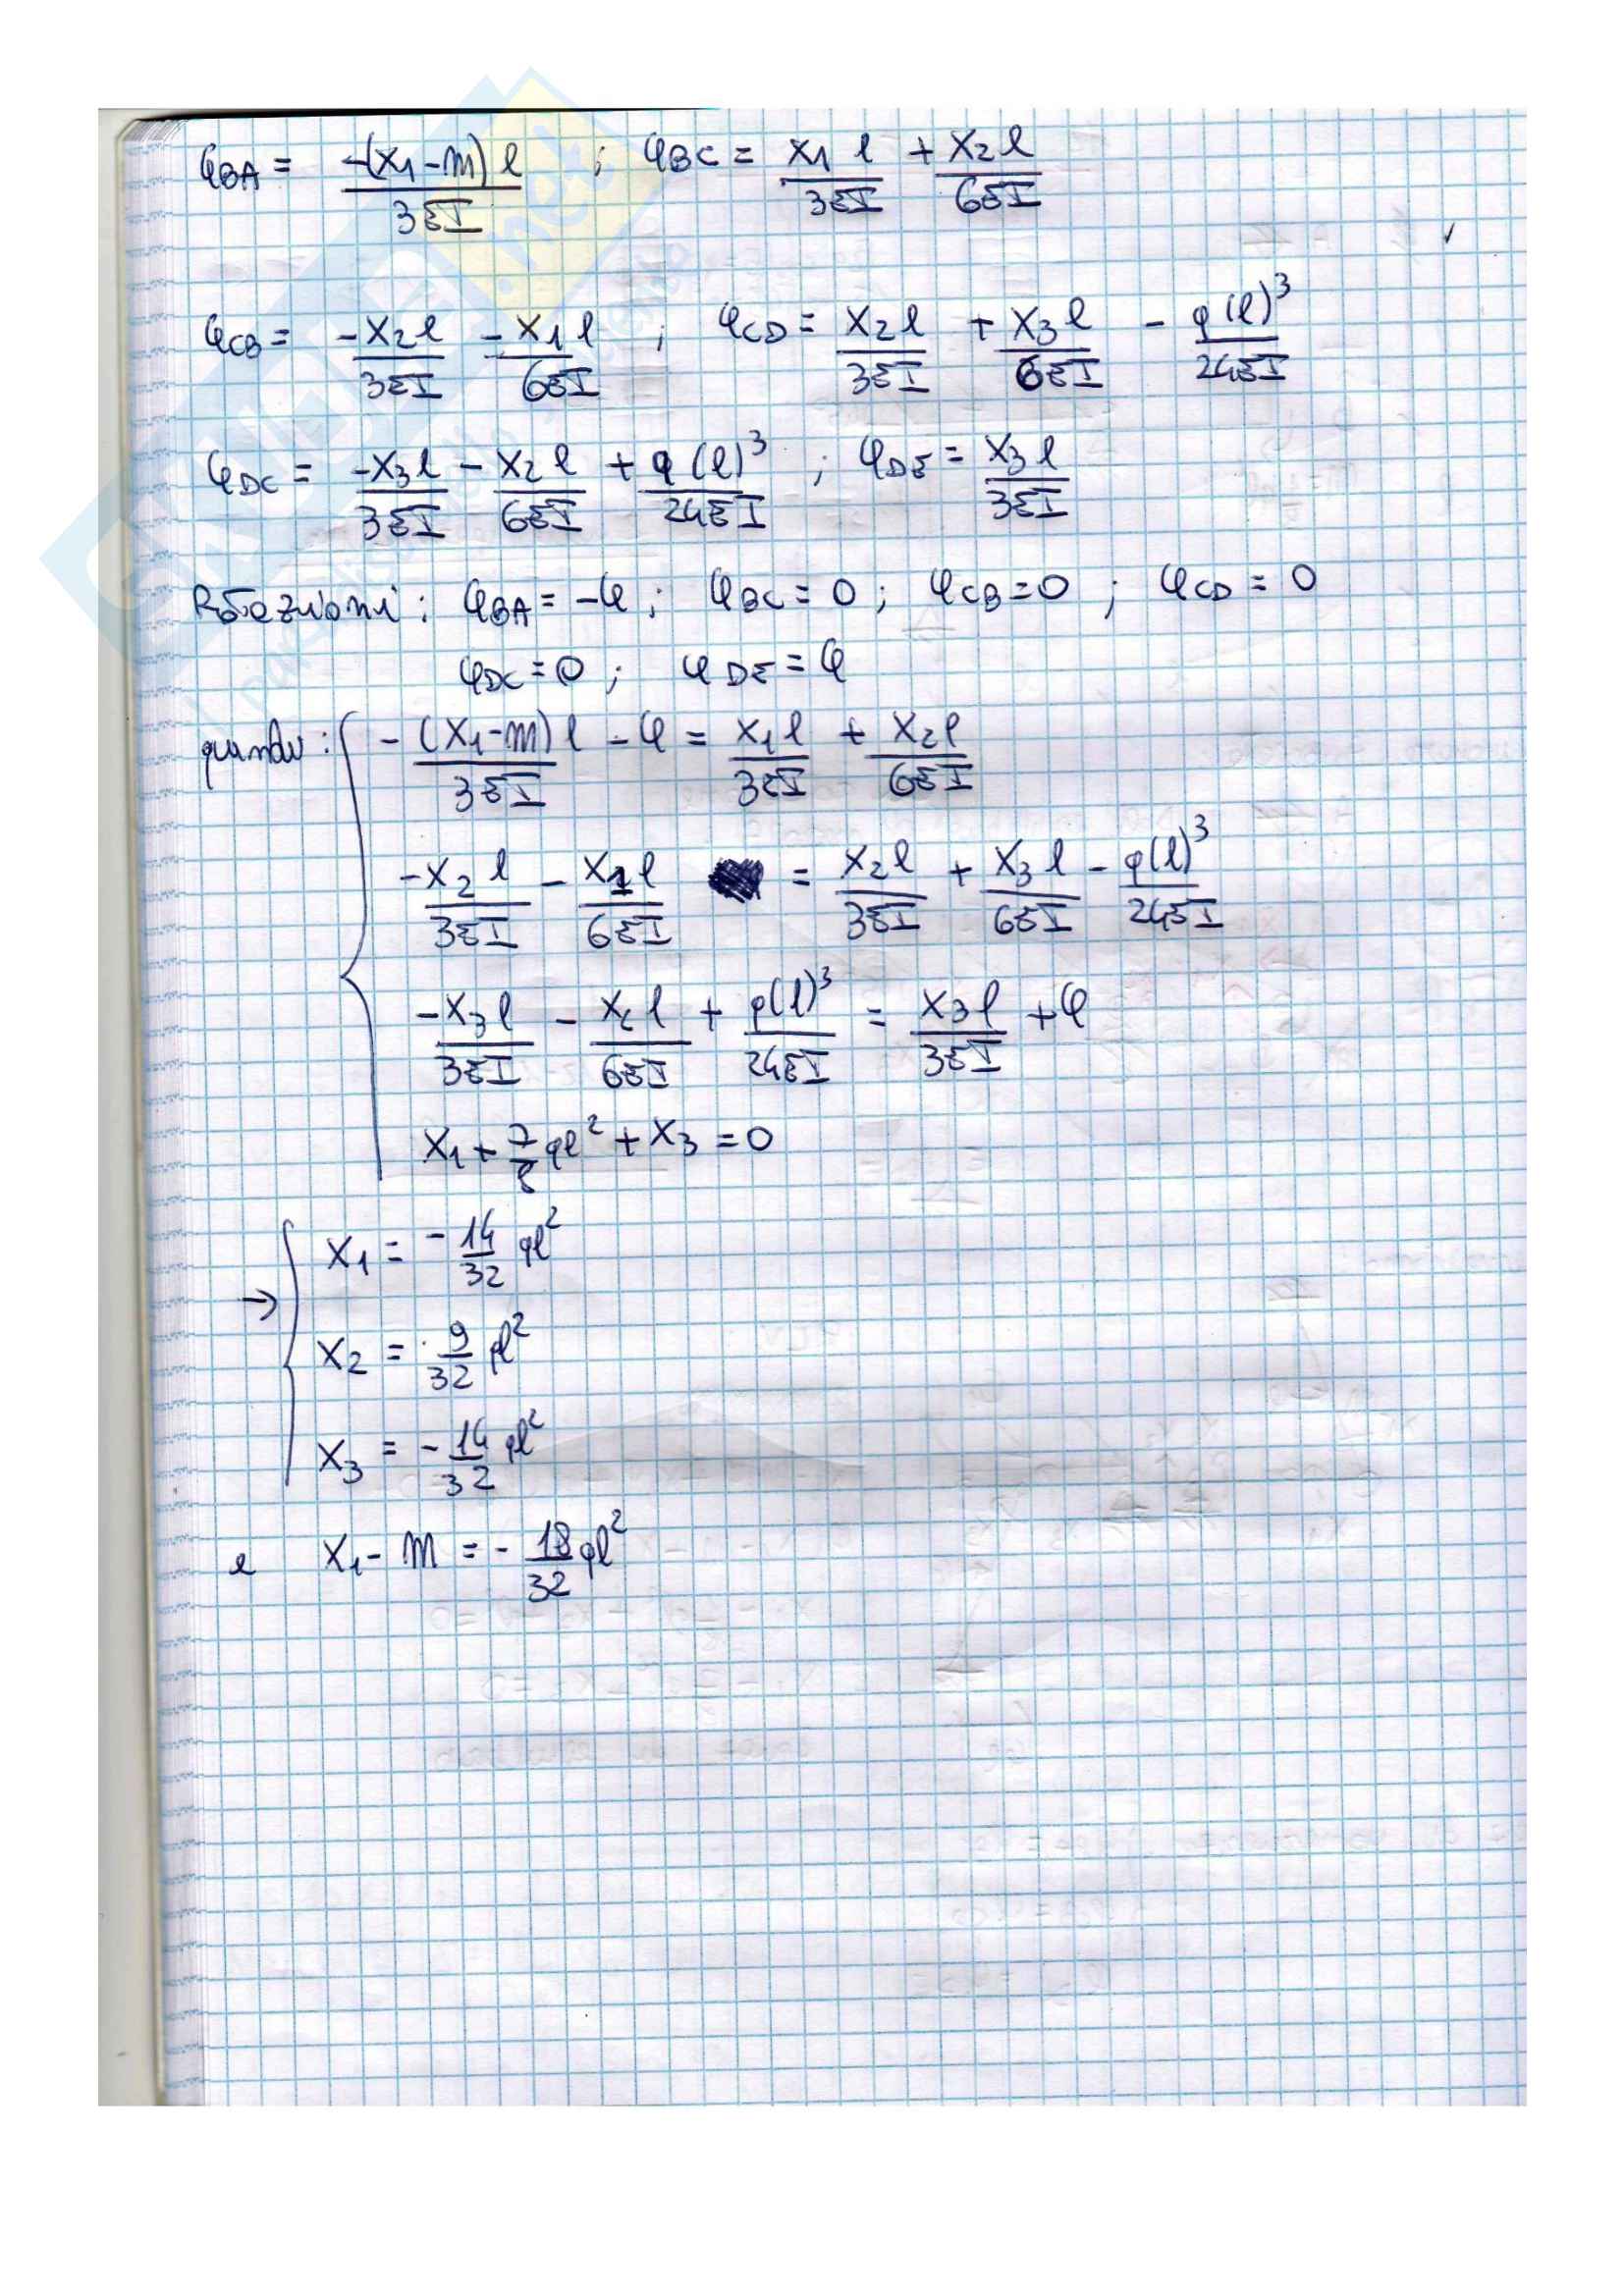 φBA = -(X1-m) l / 3EI ; φBC = X1 l / 3EI + X2 l / 6EI
φCB = -X2 l / 3EI - X1 l / 6EI ; φCD = X2 l / 3EI + X3 l / 6EI - q(l)³ / 24EI
φDC = -X3 l / 3EI - X2 l / 6EI + q(l)³ / 24EI ; φDE = X3 l / 3EI
Rotazioni : φBA = -φ ; φBC = 0 ; φCB = 0 ; φCD = 0
φDC = 0 ; φDE = φ
quindi : { -(X1-m) l / 3EI - φ = X1 l / 3EI + X2 l / 6EI
-X2 l / 3EI - X1 l / 6EI = X2 l / 3EI + X3 l / 6EI - q(l)³ / 24EI
-X3 l / 3EI - X2 l / 6EI + q(l)³ / 24EI = X3 l / 3EI + φ
X1 + 7/8 ql² + X3 = 0
→ { X1 = - 14/32 ql²
X2 = 9/32 ql²
X3 = - 14/32 ql²
e X1 - m = - 18/32 ql²